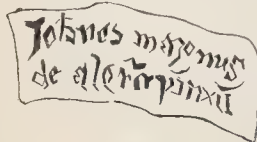 Johanes mazonus
de alexã pinxit